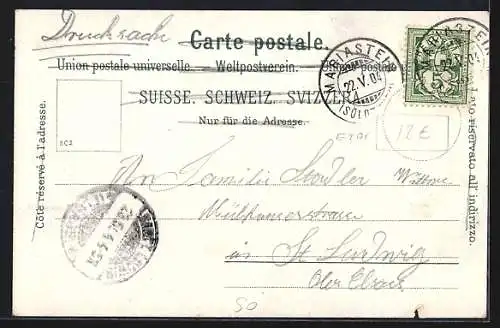 Drucksache
Carte postale.
Union postale universelle. — Weltpostverein. — Unione postale
MARIASTEIN
22.V.04
(SOLO
SUISSE. SCHWEIZ. SVIZZERA.
Nur für die Adresse.
Côté réservé à l'adresse.
Lato riservato all'indirizzo.
12 €
An Familie Stadler Wittwe
in St Ludwig
Ober Elsass
50